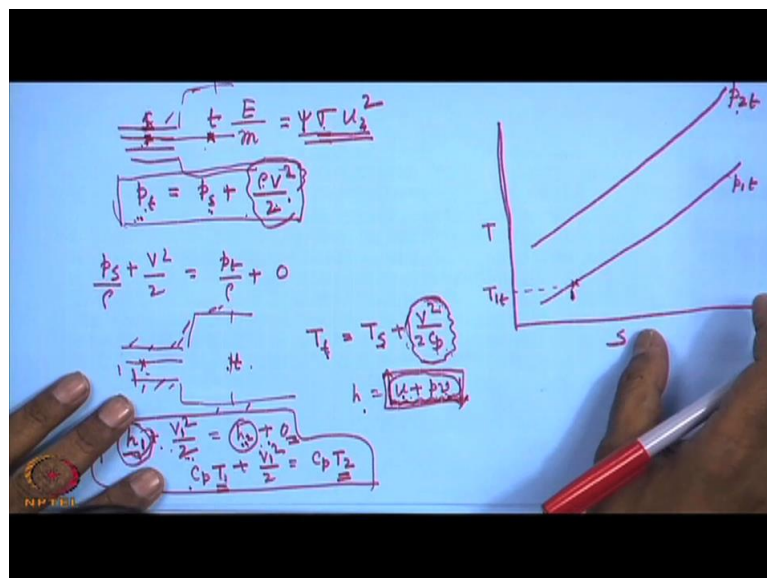 s t E/m = ψ σ u₂²
p_t = p_s + ρv²/2
p_s/ρ + v²/2 = p_t/ρ + 0
t
T_t = T_s + v²/2Cp
h = u + pv
h₁ + v₁²/2 = h₂ + 0
CpT₁ + v₁²/2 = CpT₂
p₂t
p₁t
T
T₁t
1
S
NPTEL